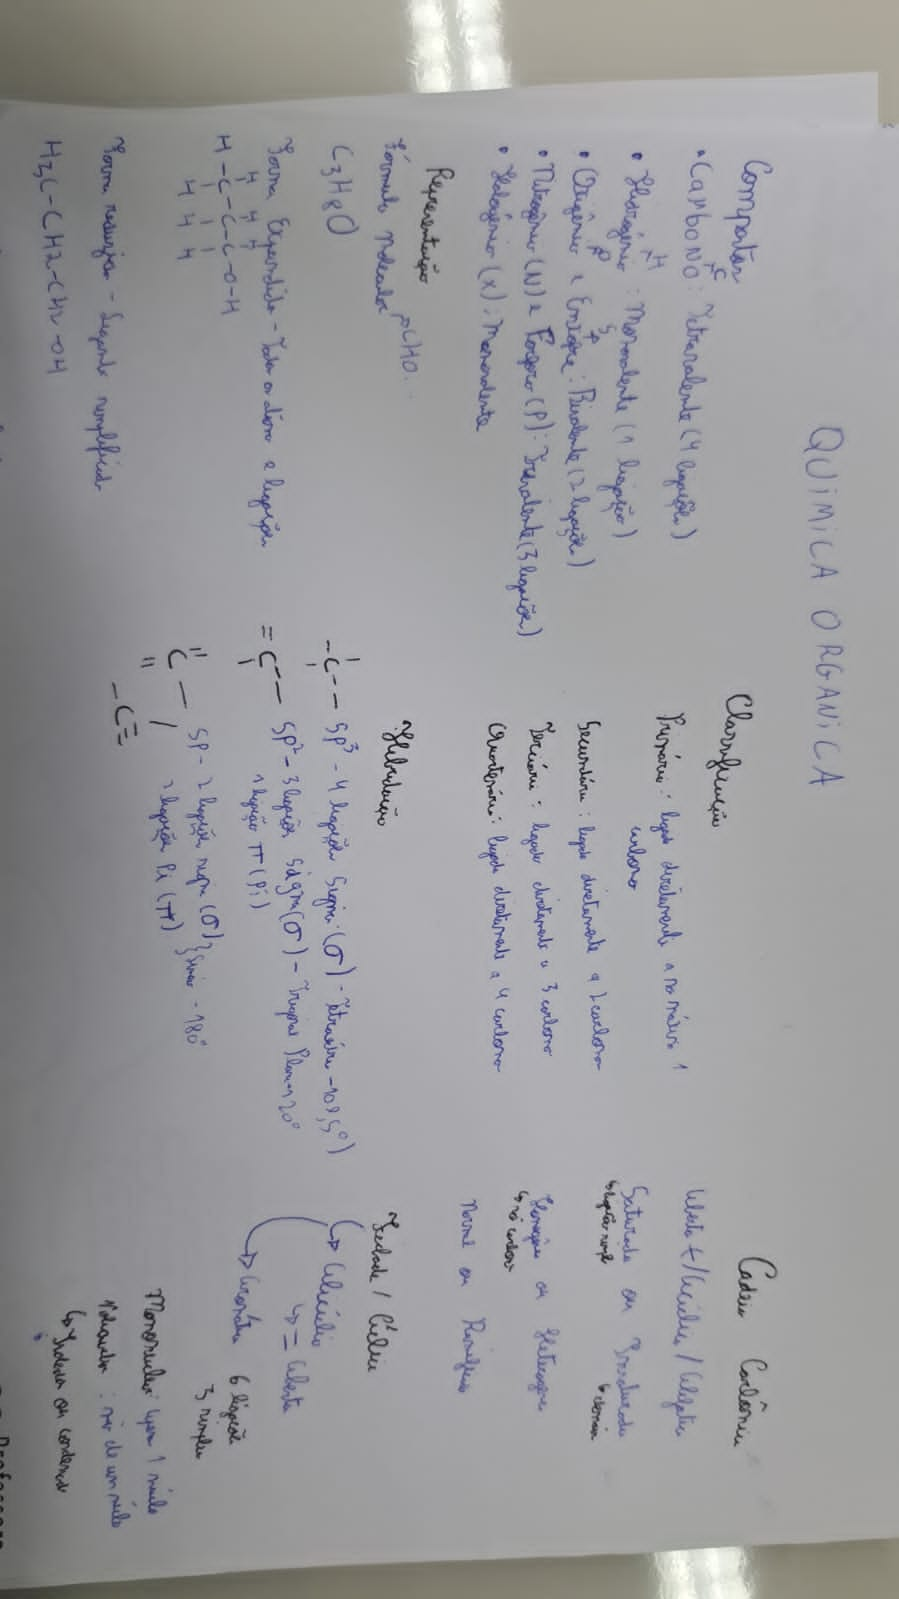 QUIMICA ORGANICA
Comportar
• CARBONO: Tetravalente (4 ligações)
C
• Hidrogênio: Monovalente (1 ligação)
H
• Oxigênio e Enxofre: Bivalente (2 ligações)
O S
• Nitrogênio (N) e Fósforo (P): Trivalente (3 ligações)
• Halogênio (X): Monovalente
Representação
Fórmula Molecular CHO..
C3H8O
Forma Expandida - Todos os átomos e ligações
H H
H-C-C-C-O-H
H H H
Forma - simplificada
H3C-CH2-CH2-OH
Classificação
Primário: ligado diretamente a no máximo 1
carbono
Secundário: ligado diretamente a 2 carbono
Terciário: ligado diretamente a 3 carbono
Quaternário: ligado diretamente a 4 carbono
Hibridação
-C- Sp³ - 4 ligações Sigma (σ) - Tetraédrica - 109,5°)
=C- Sp² - 3 ligações Sigma (σ) - Trigonal Plana - 120°
1 ligação π (Pi)
=C= Sp - 2 ligações sigma (σ) } linear - 180°
2 ligações Pi (π)
-C≡
Cadeia Carbônica
Aberta / Acíclica / Alifática
Saturada ou Insaturada
ligação simples
Homogênea ou Heterogênea
só carbono
Normal ou Ramificada
Fechada / Cíclica
Alicíclica
= Aberta
Aromática 6 ligações
3 simples
Mononuclear: apenas 1 núcleo
Polinuclear: mais de um núcleo
Isolada ou condensada